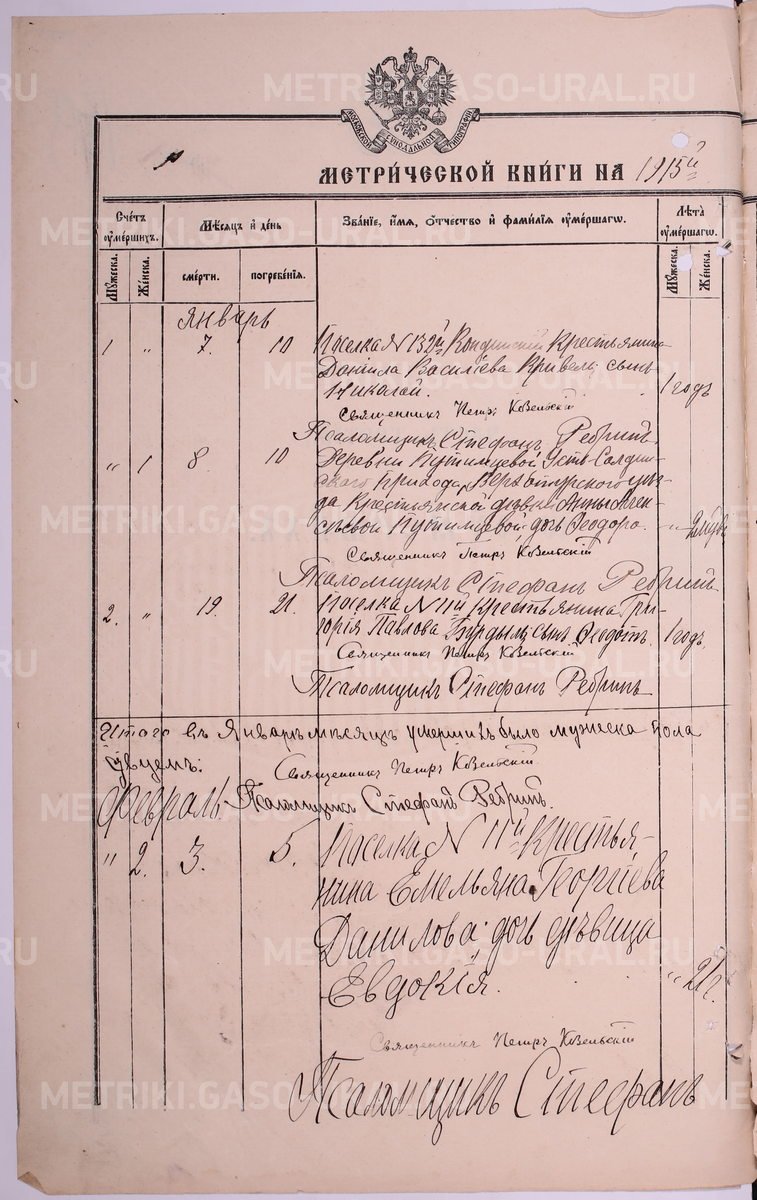 МОСКОВСКОЙ СѴНОДАЛЬНОЙ ТИПОГРАФІИ
МЕТРИЧЕСКОЙ КНИГИ НА 1915й
Счетъ умершихъ. Мѣсяцъ и день Званіе, имя, отчество и фамилія умершагѡ. Лѣта умершагѡ.
Мужеска. Женска. смерти. погребенія. Мужеска. Женска.
Январь
1 " 7. 10 Поселка N 132й Крестьянина
Даніила Васильева Кривель сынъ
Николай. 1 годъ
Священникъ Петръ Козельскій
Псаломщикъ Стефанъ Ребринъ.
" 1 8. 10 Деревни Путимцевой Усть-Салдин-
скаго прихода, Верхотурскаго уѣз-
да Крестьянской дѣвки Анны Алек-
сѣевой Путимцевой дочь Ѳеодора. "
Священникъ Петръ Козельскій
Псаломщикъ Стефанъ Ребринъ
2. " 19. 21. Поселка N 11й Крестьянина Гри-
горія Павлова сынъ Ѳеодотъ. 1 годъ
Священникъ Петръ Козельскій
Псаломщикъ Стефанъ Ребринъ
Итого въ Январѣ мѣсяцѣ умершихъ было мужеска пола
Священникъ Петръ Козельскій
Февраль. Псаломщикъ Стефанъ Ребринъ.
" 2. 3. 5. Поселка N 11й Крестья-
нина Емельяна Георгіева
Данилова дочь дѣвица
Евдокія. " 21 г.
Священникъ Петръ Козельскій
Псаломщикъ Стефанъ
METRIKI.GASO-URAL.RU